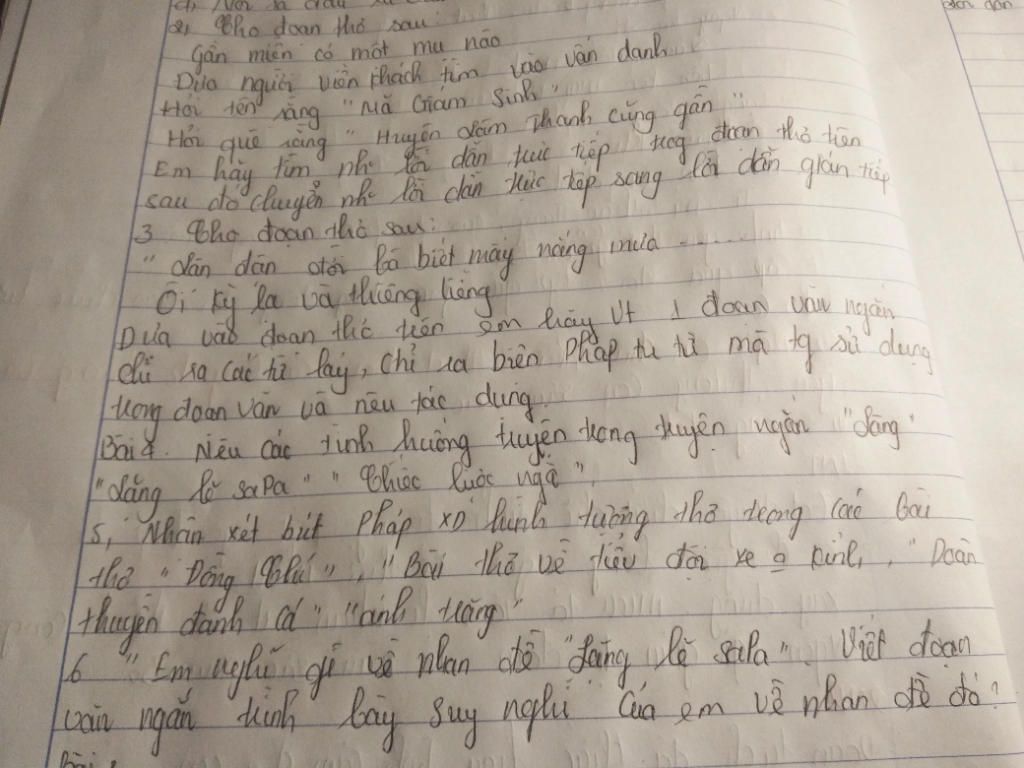 2, Cho đoạn thơ sau:
Gần miền có một mụ nào
Đưa người viễn khách tìm vào vấn danh
Hỏi tên rằng "Mã Giám Sinh"
Hỏi quê rằng "Huyện Lâm Thanh cũng gần"
Em hãy tìm nh~ lời dẫn trực tiếp trog đoạn thơ trên
sau đó chuyển nh~ lời dẫn trực tiếp sang lời dẫn gián tiếp
3 Cho đoạn thơ sau:
"Lận đận đời bà biết mấy nắng mưa ......
Ôi kỳ lạ và thiêng liêng
Dựa vào đoạn thơ trên em hãy Vt 1 đoạn văn ngắn
chỉ ra các từ láy, chỉ ra biện pháp tu từ mà tg sử dụng
trong đoạn văn và nêu tác dụng.
Bài 4. Nêu các tình huống truyện trong truyện ngắn "Làng"
"Lặng lẽ SaPa" "Chiếc lược ngà".
5, Nhận xét bút pháp XD hình tượng thơ trong các bài
thơ "Đồng Chí", "Bài thơ về tiểu đội xe o kính, "Đoàn
thuyền đánh cá" "ánh trăng"
6 "Em nghĩ gì về nhan đề "Lặng lẽ SaPa". Viết đoạn
văn ngắn trình bày suy nghĩ của em về nhan đề đó?